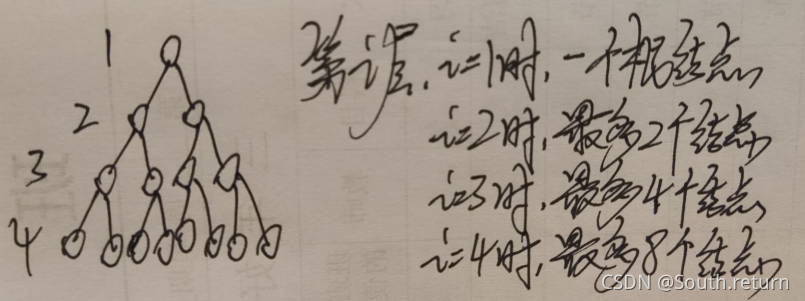 1
第i层，i=1时，一个根结点
2
i=2时，最多2个结点
3
i=3时，最多4个结点
4
i=4时，最多8个结点
CSDN @South.return